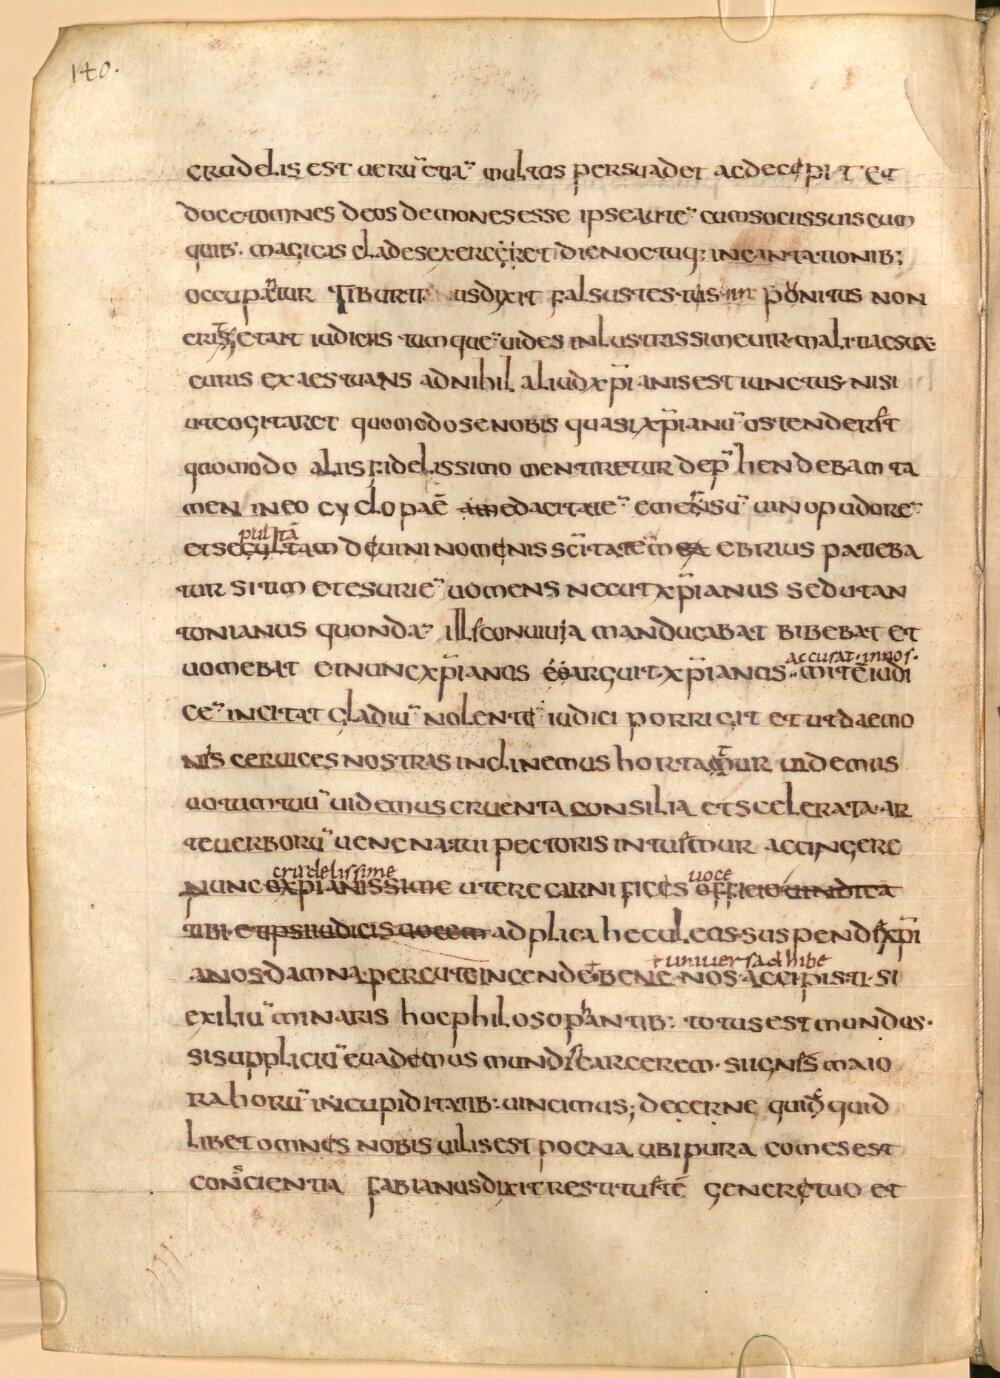 140.
crudelis est ueru̅ etia̅ multos persuadet ac decepit et
docet omnes deos demones esse ipse aute̅ cum sociis suis cum
quib· magicis clades exerceret die noctuq; incantationib;
occupatur Tiburtius dixit falsus testis inponitus non
erit et ait iudicus tumque uides inlustrissime uir malitiae suae
curis exaestuans ad nihil aliud xp̅ianis est iunctus nisi
ut cogitaret quomodo se nobis quasi xp̅ianu̅ ostenderet
quomodo aliis fidelissimo mentiretur dep̅hendebam ta
men in eo cyclopae̅ edacitate̅ emensu̅ uino pudore̅
pulsta̅
et secultam diuini nominis sc̅itate̅ ebrius patieba
tur sitim et esurie̅ uomens nec ut xp̅ianus sed ut an
tonianus quonda̅ ille conuiuia manducabat bibebat et
accusat· in nos·
uomebat et nunc xp̅ianus arguit xp̅ianus mite̅ iudi
ce̅ incitat gladiu̅ nolente iudici porrigit et ut daemo
nis ceruices nostras inclinemus hortatur uidemus
uotum tuu̅ uidemus cruenta consilia et scelerata ar
te uerboru̅ uenena tui pectoris intus accingere
crudelissime uoce
nunc expianissime utere carnifices officio uindica
tibi et ipsi iudicis uocem adplica heculeus suspende xp̅i
+ universa adhibe
anos damna percute incende+ bene nos accipis ti si
exiliu̅ minaris hoc philosophantib: totus est mundus·
si suppliciu̅ euademus mundi carcerem· si ignis maio
ra horu̅ in cupiditatib: uincimus; decerne quid quid
libet omnes nobis uilis est poena ubi pura comes est
conscientia Fabianus dixit restitute generetuo et